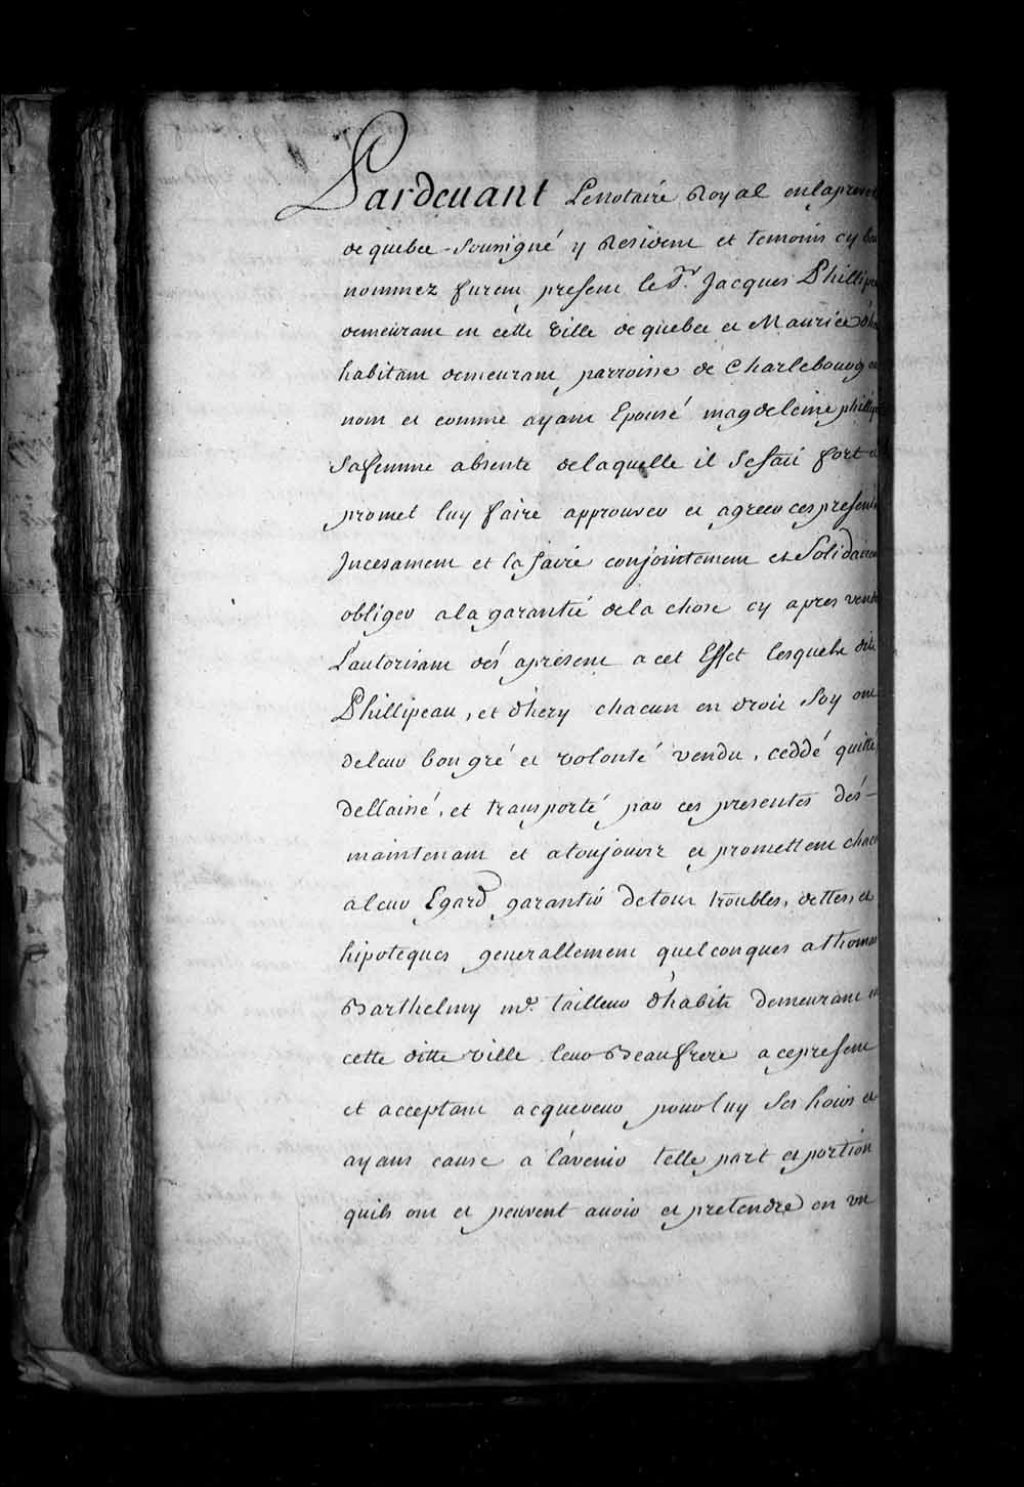 Pardevant Le notaire Royal en la prevo
de quebec Sousigné y Resident et temoins cy bas
nommez furent present le Sr. Jacques Phillipe
demeurant en cette Ville de quebec et Maurice dhe
habitant demeurant parroisse de Charlebourg
nom et comme ayant Epousé magdeleine phillip
Sa femme absente de laquelle il Se fait fort
promet luy faire approuver et agreer ces presen
Incesament et la faire conjointement et Solidairem
obliger a la garantie de la chose cy apres vend
L'autorisant dés apresent a cet Effet Lesquels dits
Phillipeau, et dhery chacun en droit Soy ont
de leur bon gré et volonté vendu, ceddé quitté
dellaissé, et transporté par ces presentes dés-
maintenant et a toujours et promettent chac
a leur Egard garantir de tous troubles, dettes, et
hipoteques generallement quelconques a Thomas
Barthelmy md. tailleur dhabits demeurant
cette ditte ville leur Beaufrere a ce present
et acceptant acquereur pour luy Ses hoirs et
ayans cause a l'avenir telle part et portion
quils ont et peuvent avoir et pretendre en un